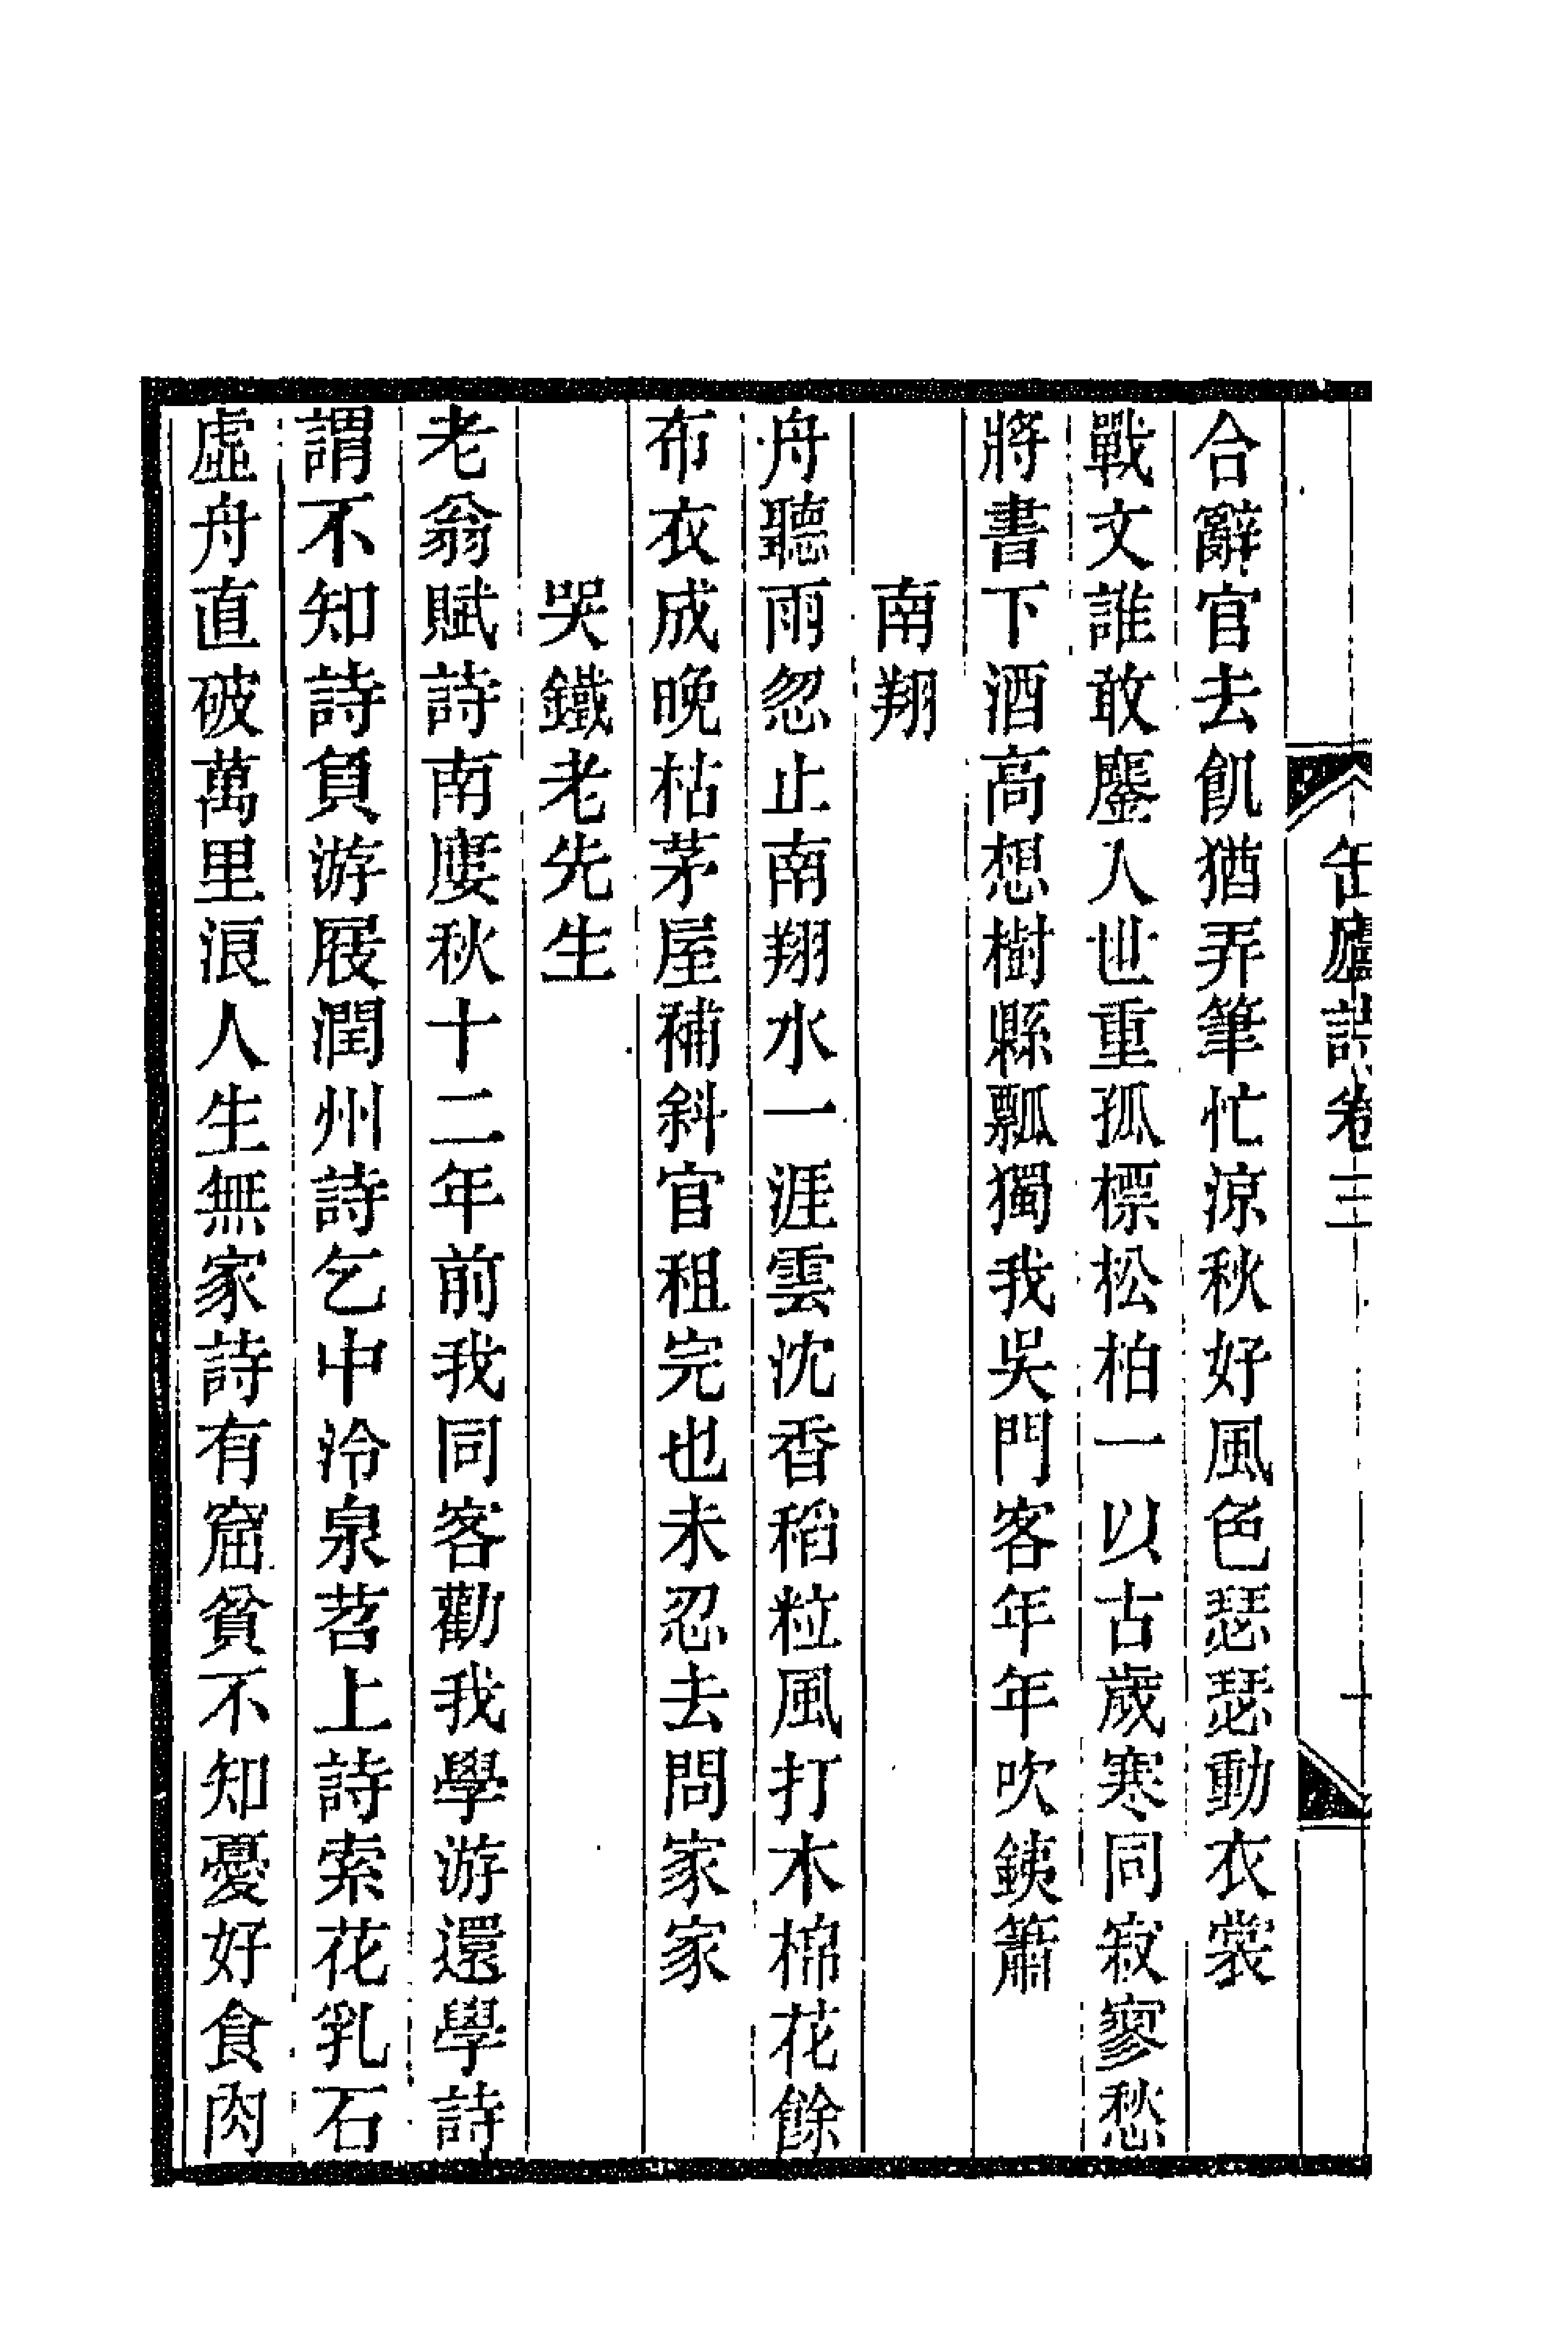 缶廬詩卷三
合辭官去飢猶弄筆忙涼秋好風色瑟瑟動衣裳
戰文誰敢鏖人世重孤標松柏一以古歲寒同寂寥愁
將書下酒高想樹縣瓢獨我吳門客年年吹銕簫
南翔
舟聽雨忽止南翔水一涯雲沈香稻粒風打木棉花餘
布衣成晚枯茅屋補斜官租完也未忍去問家家
哭鐵老先生
老翁賦詩南廔秋十二年前我同客勸我學游還學詩
謂不知詩負游屐潤州詩乞中泠泉苕上詩索花乳石
虛舟直破萬里浪人生無家詩有窟貧不知憂好食肉